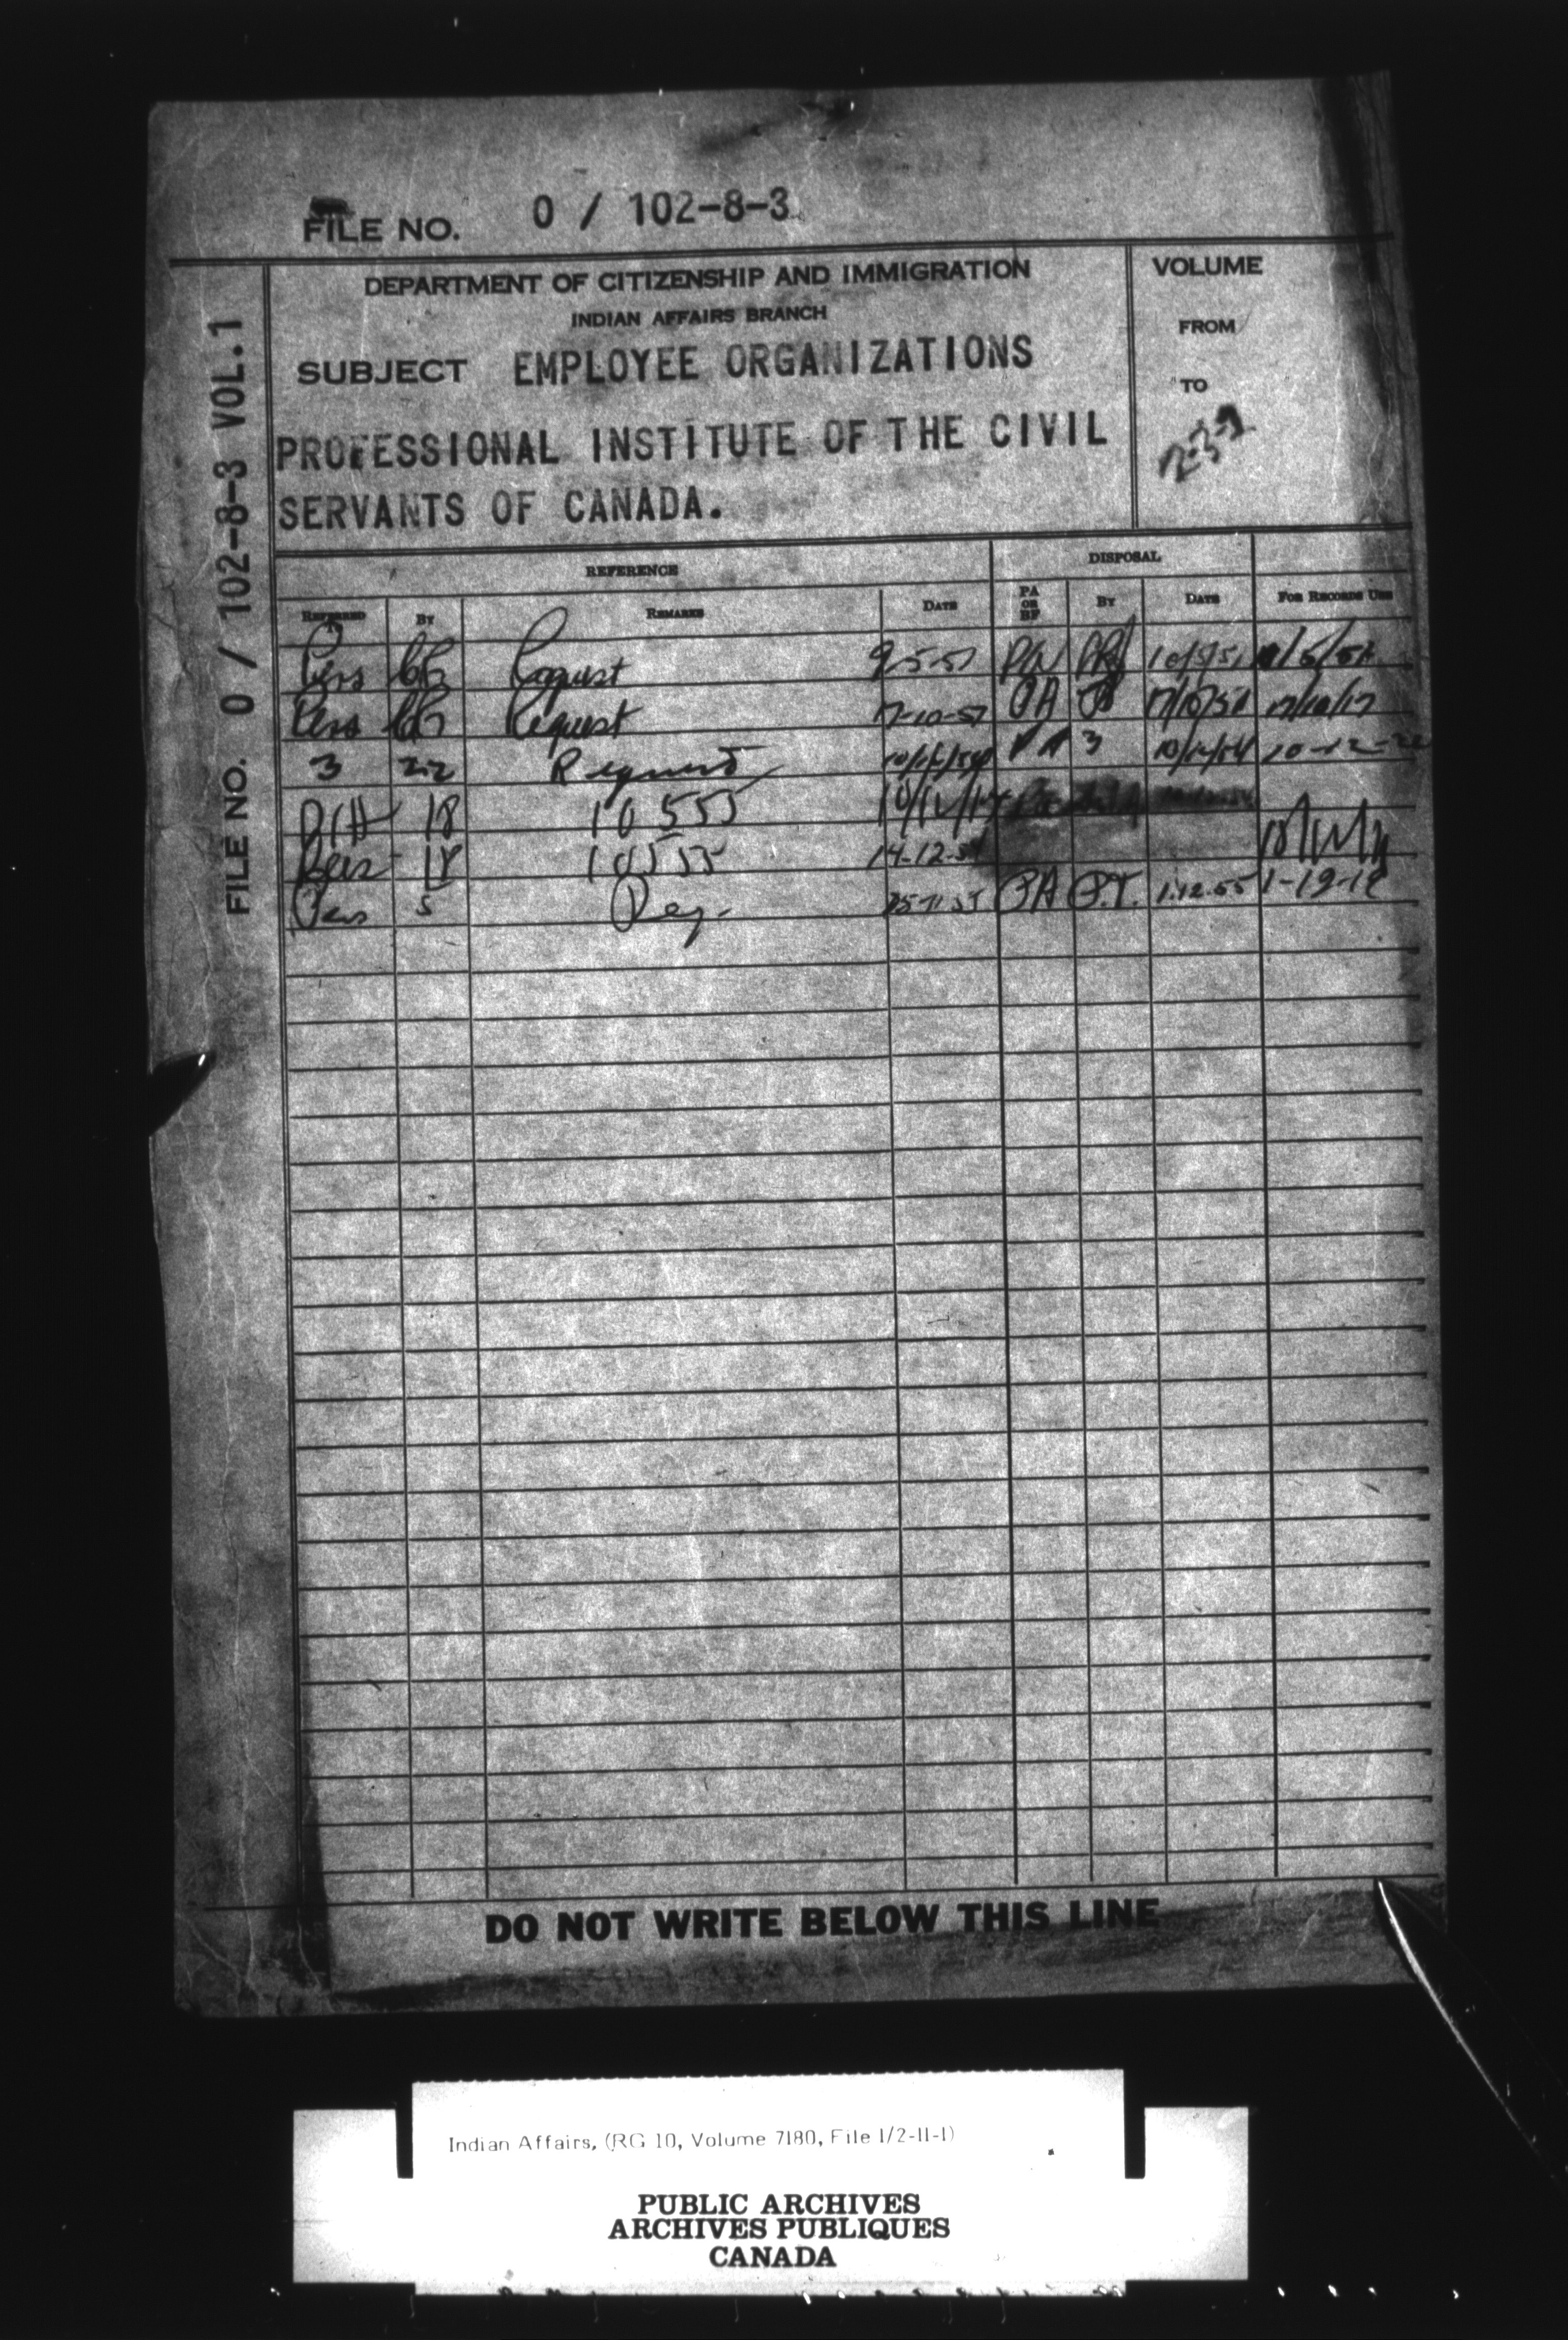 FILE NO. 0 / 102-8-3
DEPARTMENT OF CITIZENSHIP AND IMMIGRATION
INDIAN AFFAIRS BRANCH
SUBJECT EMPLOYEE ORGANIZATIONS
PROFESSIONAL INSTITUTE OF THE CIVIL
SERVANTS OF CANADA.
VOLUME
FROM
TO
FILE NO. 0 / 102-8-3 VOL.1
REFERENCE
DISPOSAL
REFERRED TO BY REMARKS DATE PA OR BF BY DATE FOR RECORDS USE
Pers Request 9-5-51 PA 10/5/51
Pers Request 17-10-51 PA 17/10/51
3 22 Request 10/12/54 PA 3 10/12/54
18 10555
Pers 18 10555 14-12-54
Pers 5 Req. 25-11-55 PA P.T. 1.12.55
DO NOT WRITE BELOW THIS LINE
Indian Affairs, (RG 10, Volume 7180, File 1/2-11-1)
PUBLIC ARCHIVES
ARCHIVES PUBLIQUES
CANADA